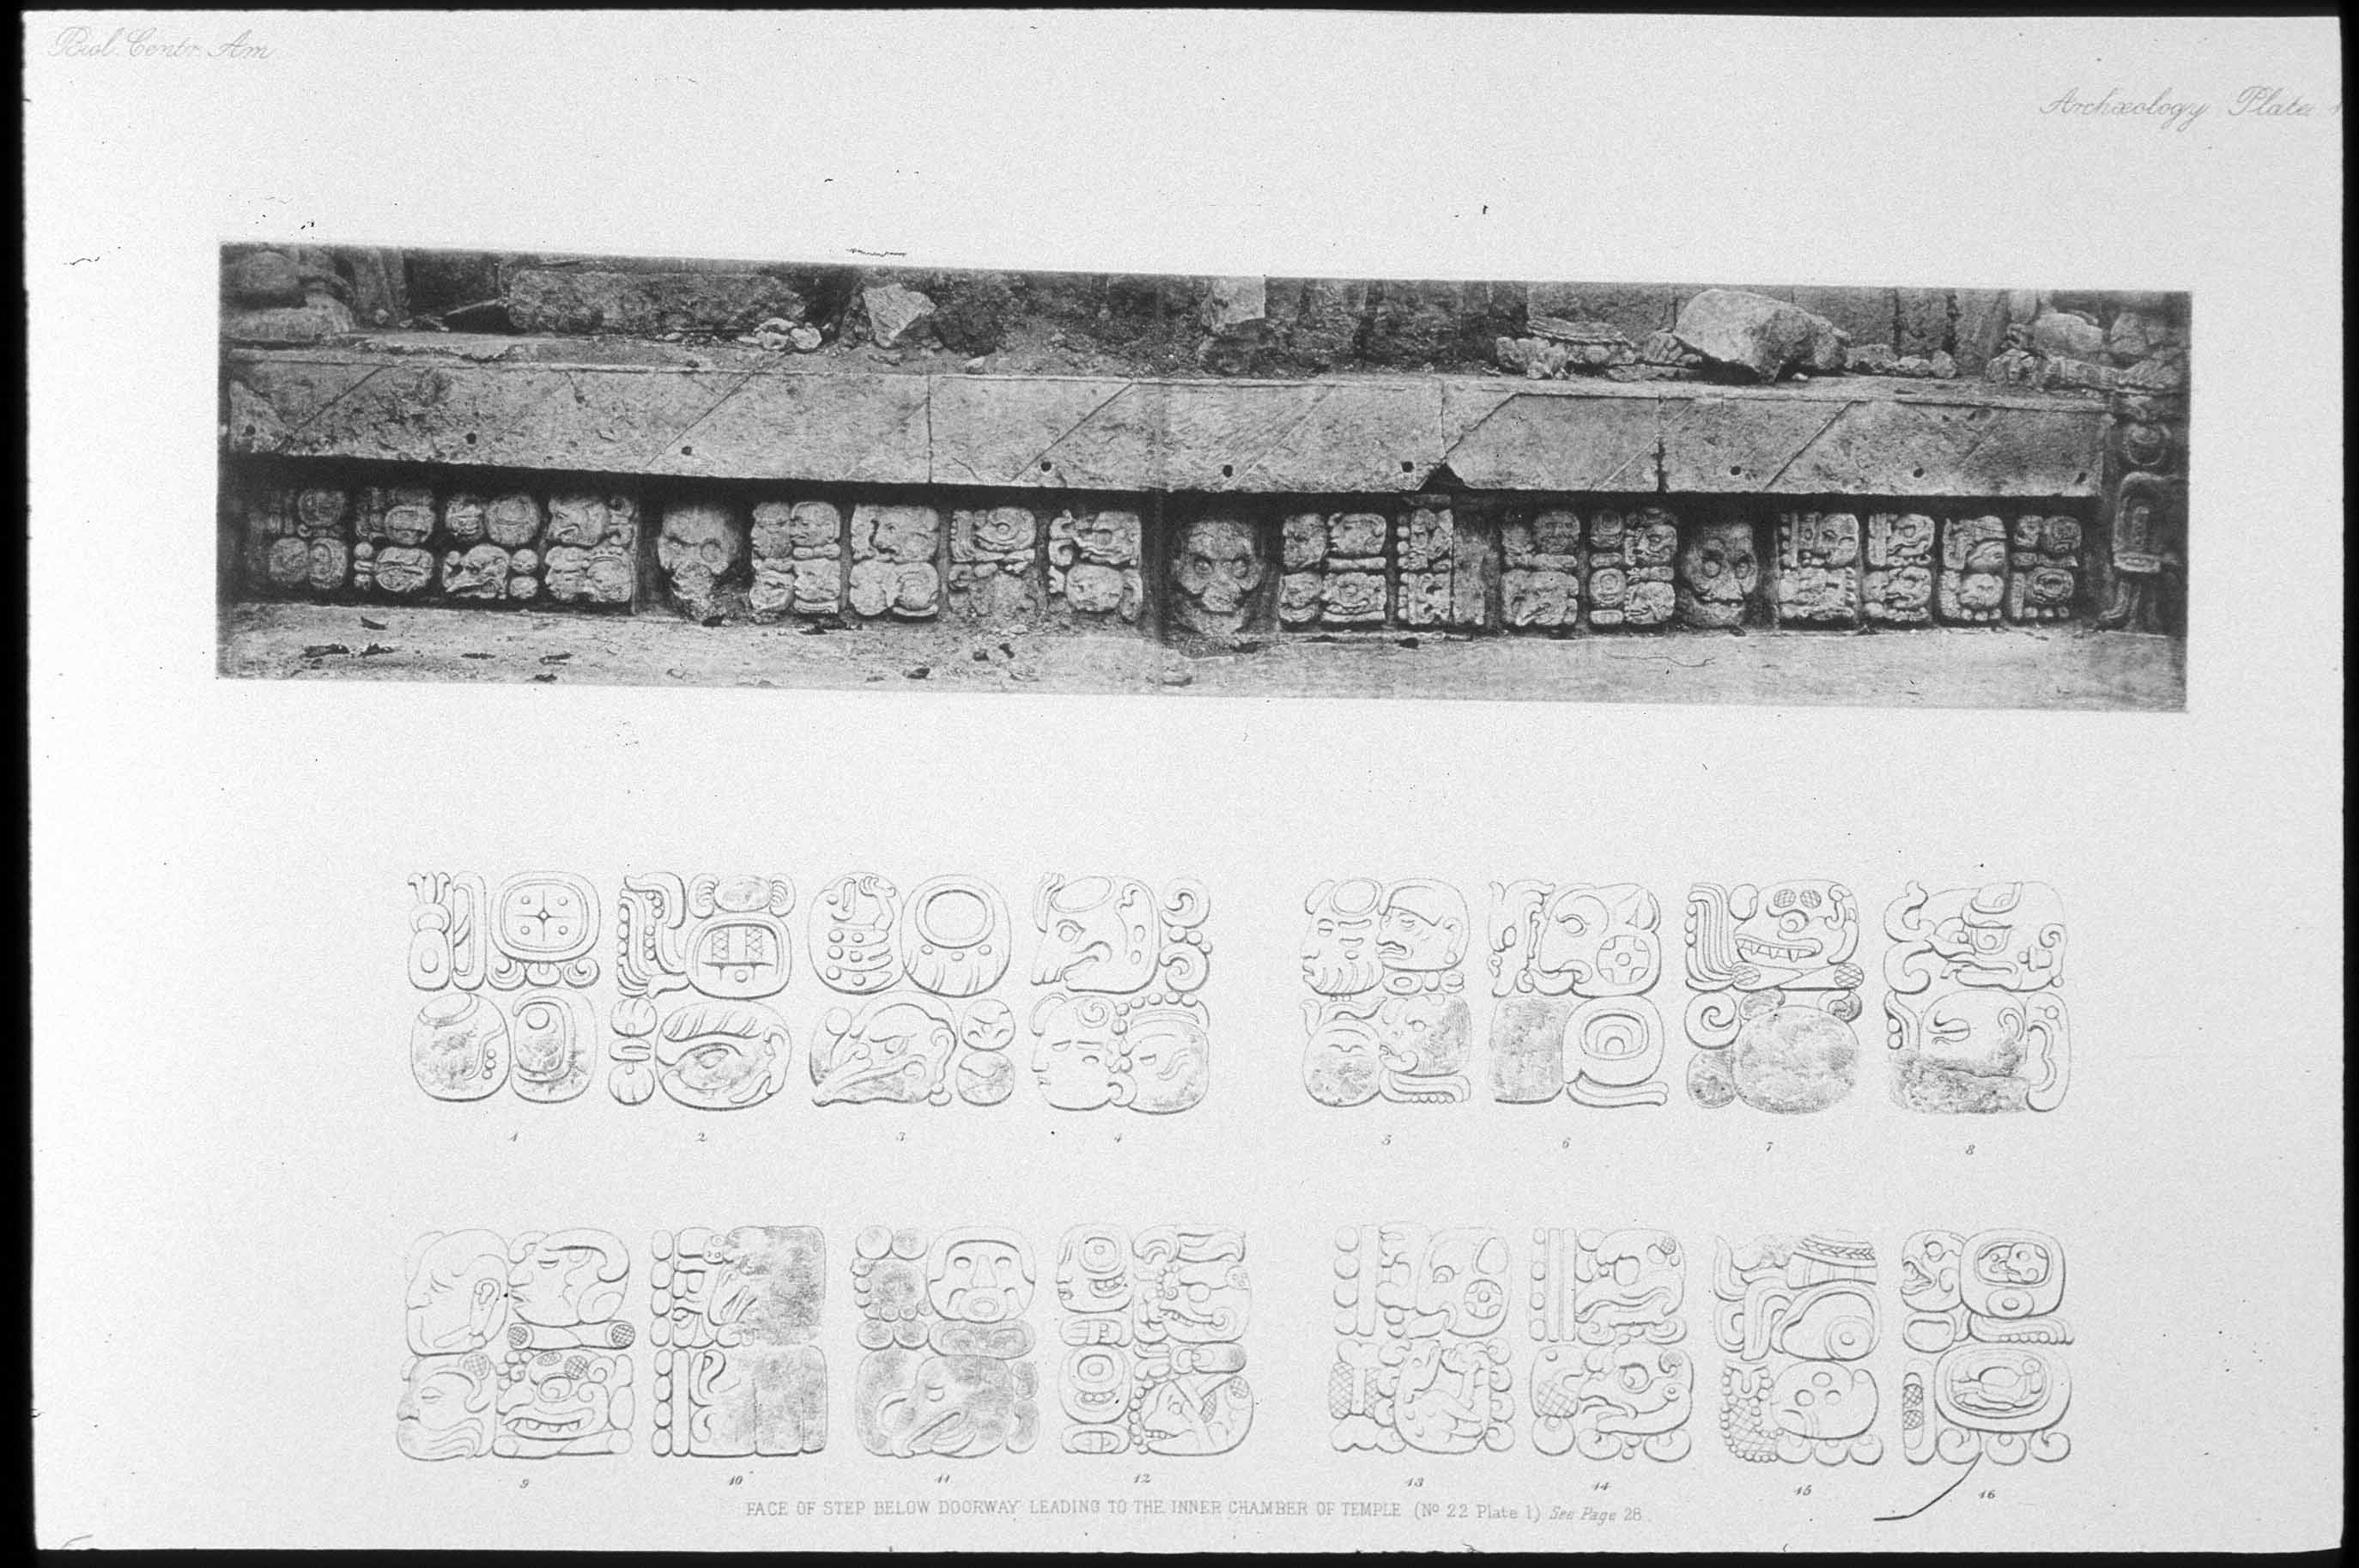 Biol. Centr. Am
Archæology Plate
1
2
3
4
5
6
7
8
9
10
11
12
13
14
15
16
FACE OF STEP BELOW DOORWAY LEADING TO THE INNER CHAMBER OF TEMPLE (Nº 22 Plate 1) See Page 28.